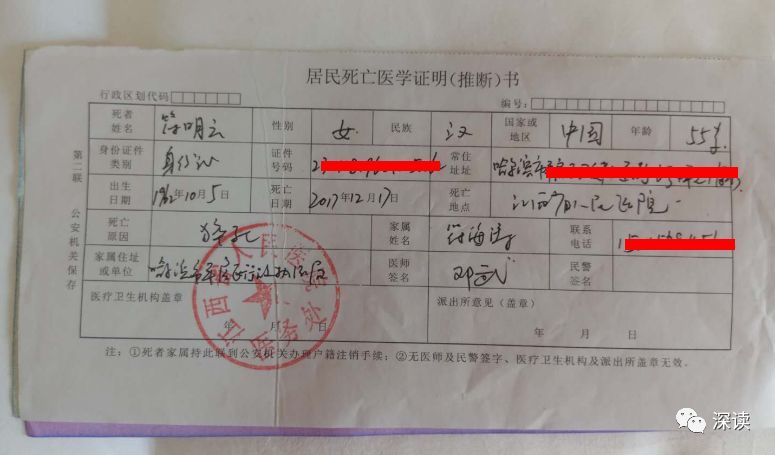 居民死亡医学证明(推断)书
行政区划代码 编号:
死者姓名 符明云 性别 女 民族 汉 国家或地区 中国 年龄 55岁
身份证件类别 身份证 证件号码 常住地址 哈尔滨市
出生日期 1962年10月5日 死亡日期 2017年12月17日 死亡地点 江西省人民医院
死亡原因 猝死 家属姓名 符海涛 联系电话
家属住址或单位 哈尔滨市 医师签名 邓武 民警签名
医疗卫生机构盖章 派出所意见(盖章)
年 月 日 年 月 日
注:①死者家属持此联到公安机关办理户籍注销手续;②无医师及民警签字、医疗卫生机构及派出所盖章无效。
第二联 公安机关保存
江西省人民医院医务处
深读